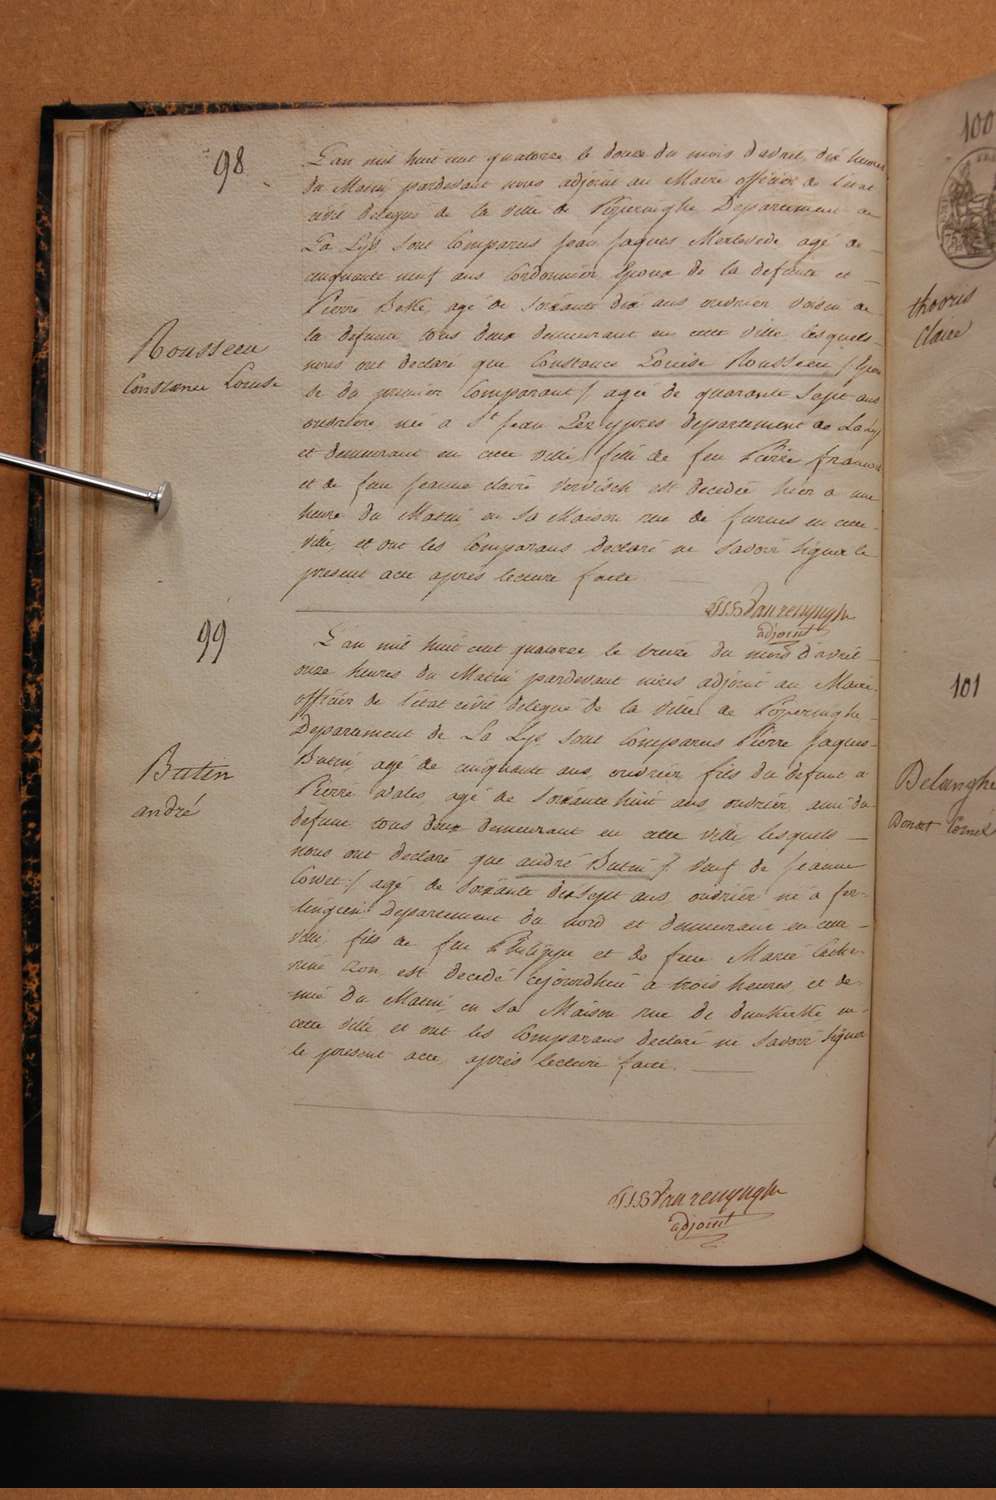 98
L'an mil huit cent quatorze le douze du mois d'avril, dix heures
du Matin pardevant nous adjoint au Maire officier de l'état
civil délegué de la ville de Poperinghe Departement de
La Lys sont Comparus Jean Jaques Merlevede agé de
cinquante neuf ans Cordonnier, Epoux de la defunte et
Pierre Bette, agé de soixante dix ans ouvrier voisin de
la defunte, tous deux demeurant en cette ville lesquels
nous ont declaré que Constance Louise Rousseeu / Epou
se du premier Comparant / agée de quarante sept ans
ouvriere, née a St Jean Lez ypres departement de La Lys
et demeurant en cette ville fille de feu Pierre francois
et de feue Jeanne claire Vervisch est decedée hier a une
heure du Matin en sa Maison rue de furnes en cette
ville, et ont les Comparans declaré ne savoir signer le
present acte après lecture faite.
Rousseeu
Constance Louise
adjoint
99
L'an mil huit cent quatorze le treize du mois d'avril
onze heures du Matin pardevant nous adjoint au Maire
officier de l'état civil délegué de la ville de Poperinghe
Departement de La Lys sont Comparus Pierre Jaques
Butin, agé de cinquante ans, ouvrier fils du defunt et
Pierre agé de soixante huit ans, ouvrier, ami du
defunt, tous deux demeurant en cette ville lesquels
nous ont declaré que andré Butin / veuf de Jeanne
/ agé de soixante dixsept ans, ouvrier né a
Departement du nord et demeurant en cette
ville, fils de feu Philippe et de feue Marie Cathe-
rine est decedé cejourdhui a trois heures et de-
mie du Matin, en sa Maison rue de dunkerke en
cette ville et ont les Comparans declaré ne savoir signer
le present acte, après lecture faite.
Butin
andré
adjoint
100
thooris
Claire
101
Delanghe